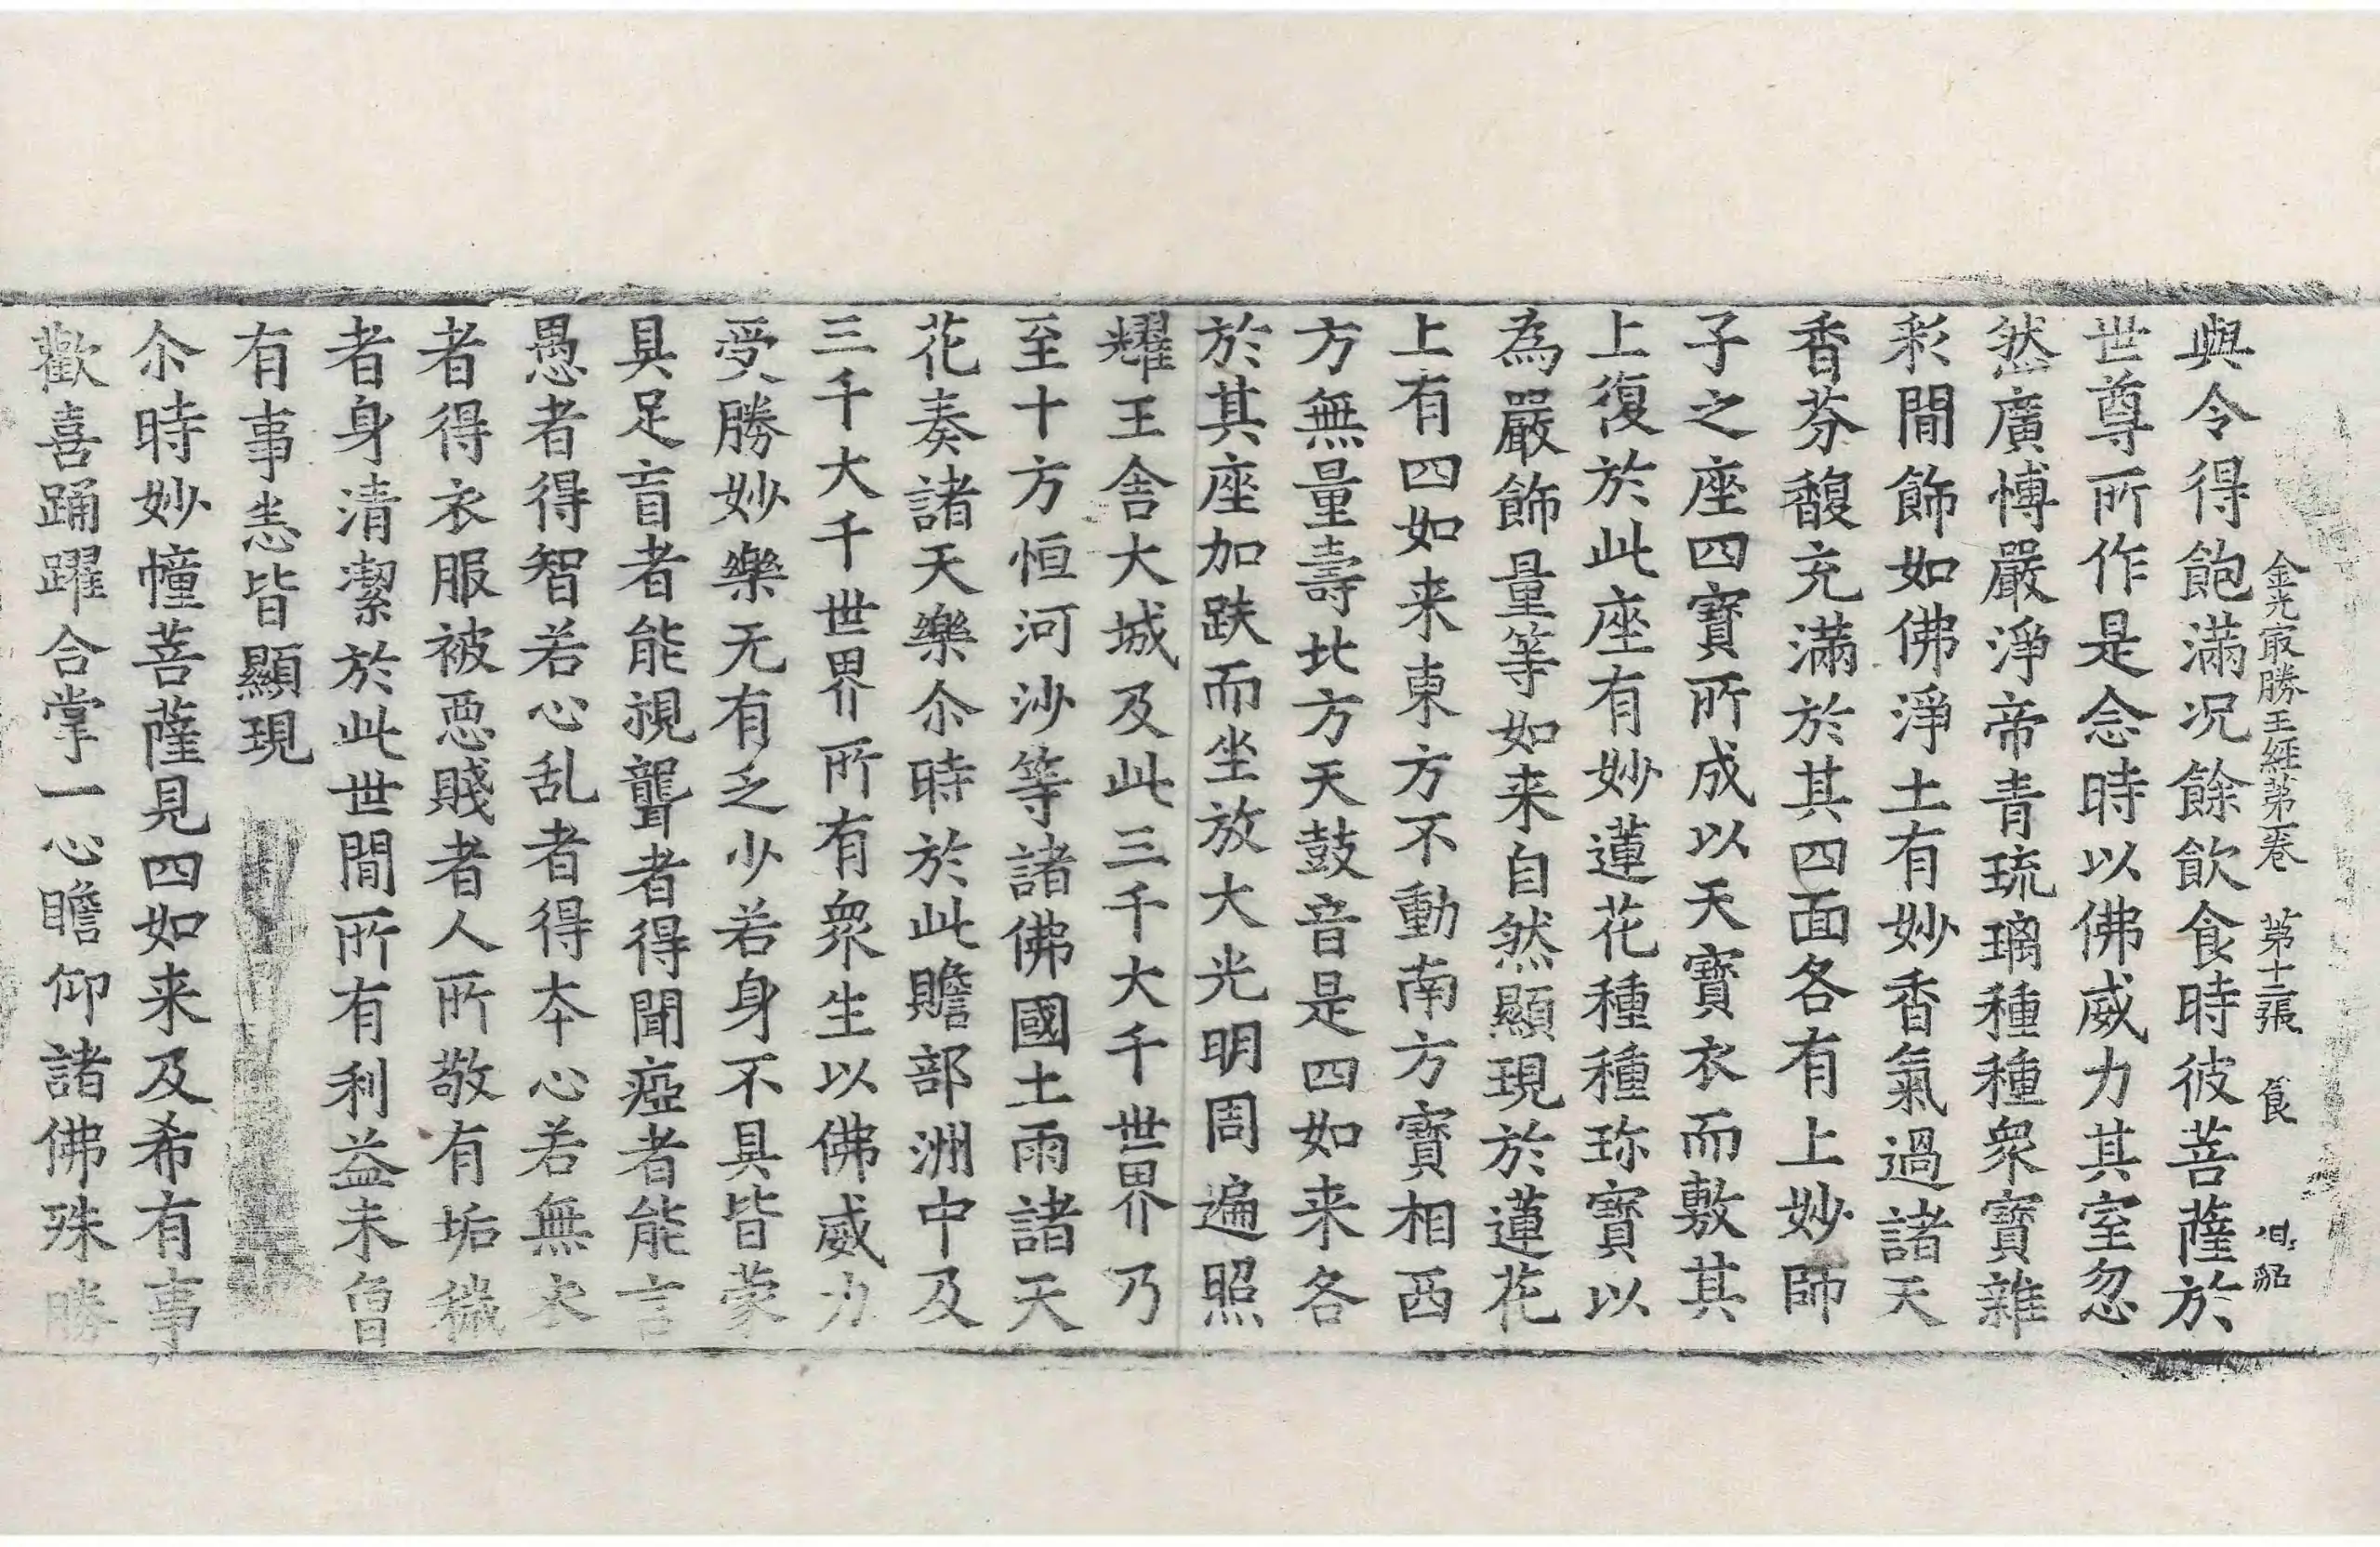 金光冣勝王經苐一卷　苐十二張　食
與令得飽滿况餘飲食時彼菩薩於
世尊所作是念時以佛威力其室忽
然廣博嚴淨帝青琉璃種種衆寶雜
彩間飾如佛淨土有妙香氣過諸天
香芬馥充滿於其四面各有上妙師
子之座四寶所成以天寶衣而敷其
上復於此座有妙蓮花種種珎寶以
為嚴飾量等如来自然顯現於蓮花
上有四如来東方不動南方寶相西
方無量壽北方天鼓音是四如来各
於其座加趺而坐放大光明周遍照
耀王舍大城及此三千大千世界乃
至十方恒河沙等諸佛國土雨諸天
花奏諸天樂尒時於此贍部洲中及
三千大千世界所有衆生以佛威力
受勝妙樂无有乏少若身不具皆蒙
具足盲者能視聾者得聞瘂者能言
愚者得智若心乱者得夲心若無衣
者得衣服被惡賤者人所敬有垢穢
者身清潔於此世間所有利益未曾
有事悉皆顯現
尒時妙幢菩薩見四如来及希有事
歡喜踊躍合掌一心瞻仰諸佛殊勝